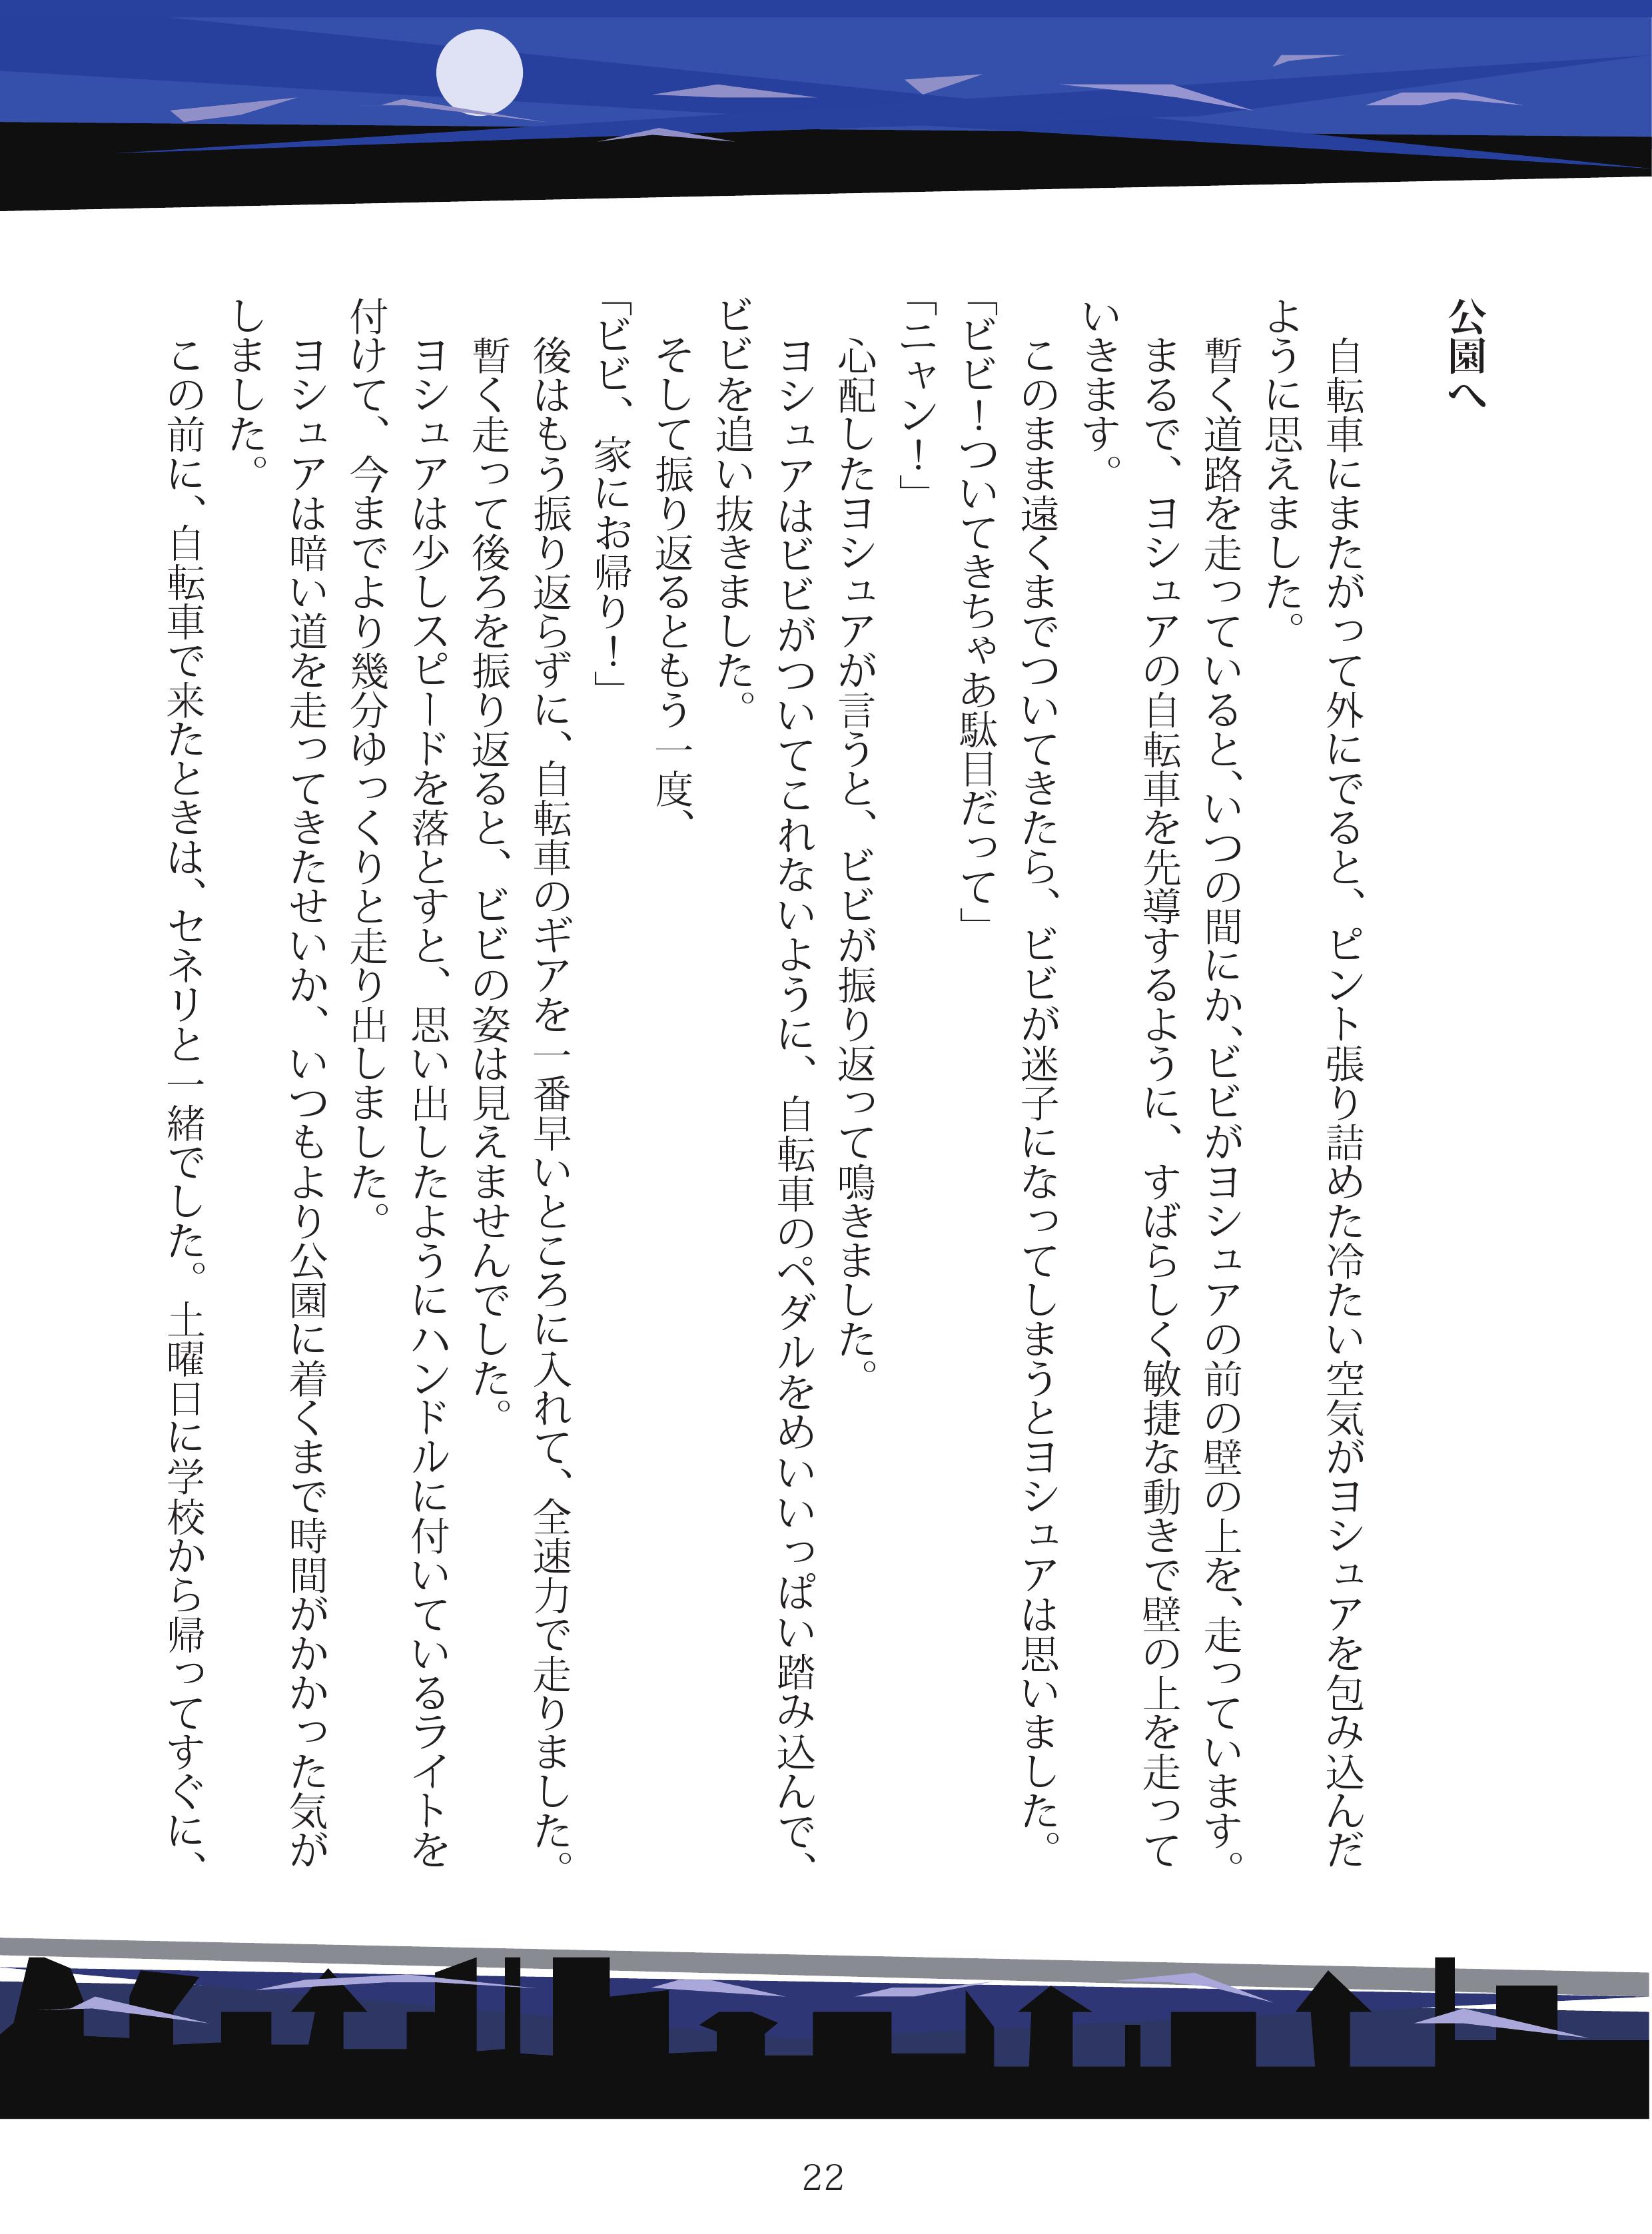 公園へ
自転車にまたがって外にでると、ピント張り詰めた冷たい空気がヨシュアを包み込んだ
ように思えました。
暫く道路を走っていると、いつの間にか、ビビがヨシュアの前の壁の上を、走っています。
まるで、ヨシュアの自転車を先導するように、すばらしく敏捷な動きで壁の上を走って
いきます。
このまま遠くまでついてきたら、ビビが迷子になってしまうとヨシュアは思いました。
「ビビ！ついてきちゃあ駄目だって」
「ニャン！」
心配したヨシュアが言うと、ビビが振り返って鳴きました。
ヨシュアはビビがついてこれないように、自転車のペダルをめいいっぱい踏み込んで、
ビビを追い抜きました。
そして振り返るともう一度、
「ビビ、家にお帰り！」
後はもう振り返らずに、自転車のギアを一番早いところに入れて、全速力で走りました。
暫く走って後ろを振り返ると、ビビの姿は見えませんでした。
ヨシュアは少しスピードを落とすと、思い出したようにハンドルに付いているライトを
付けて、今までより幾分ゆっくりと走り出しました。
ヨシュアは暗い道を走ってきたせいか、いつもより公園に着くまで時間がかかった気が
しました。
この前に、自転車で来たときは、セネリと一緒でした。土曜日に学校から帰ってすぐに、
22